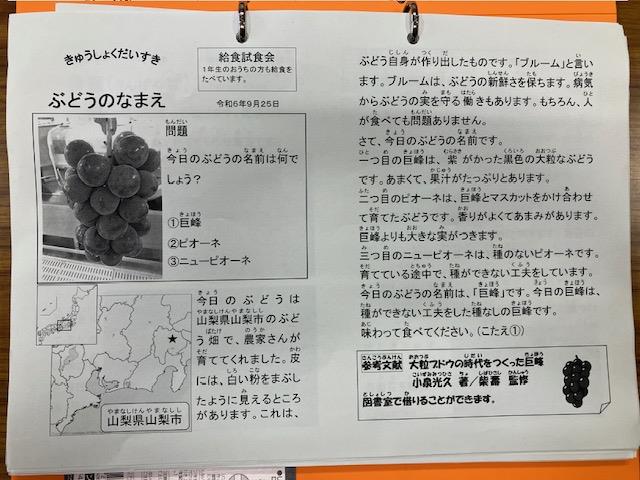 きゅうしょくだいすき
給食試食会
1年生のおうちの方も給食を
たべています。
ぶどうのなまえ
令和6年9月25日
問題
今日のぶどうの名前は何で
しょう？
①巨峰
②ピオーネ
③ニューピオーネ
今日のぶどうは
山梨県山梨市のぶど
う畑で、農家さんが
育ててくれました。皮
には、白い粉をまぶし
たように見えるところ
があります。これは、
山梨県山梨市
ぶどう自身が作り出したものです。「ブルーム」と言い
ます。ブルームは、ぶどうの新鮮さを保ちます。病気
からぶどうの実を守る働きもあります。もちろん、人
が食べても問題ありません。
さて、今日のぶどうの名前です。
一つ目の巨峰は、紫がかった黒色の大粒なぶどう
です。あまくて、果汁がたっぷりとあります。
二つ目のピオーネは、巨峰とマスカットをかけ合わせ
て育てたぶどうです。香りがよくてあまみがあります。
巨峰よりも大きな実がつきます。
三つ目のニューピオーネは、種のないピオーネです。
育てている途中で、種ができない工夫をしています。
今日のぶどうの名前は、「巨峰」です。今日の巨峰は、
種ができない工夫をした種なしの巨峰です。
味わって食べてください。（こたえ①）
参考文献 大粒ブドウの時代をつくった巨峰
小泉光久 著／柴壽 監修
図書室で借りることができます。